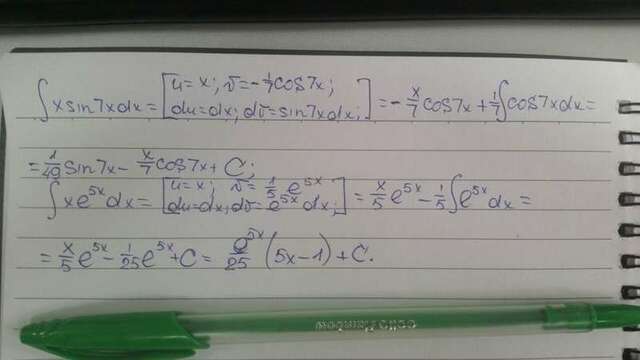 ∫x sin7x dx = [u=x; v=-1/7 cos7x; du=dx; dv=sin7x dx;] = -x/7 cos7x + 1/7 ∫cos7x dx =
= 1/49 sin7x - x/7 cos7x + C;
∫x e^{5x} dx = [u=x; v=1/5 e^{5x} du=dx, dv=e^{5x} dx;] = x/5 e^{5x} - 1/5 ∫e^{5x} dx =
= x/5 e^{5x} - 1/25 e^{5x} + C = e^{5x}/25 (5x-1) + C.